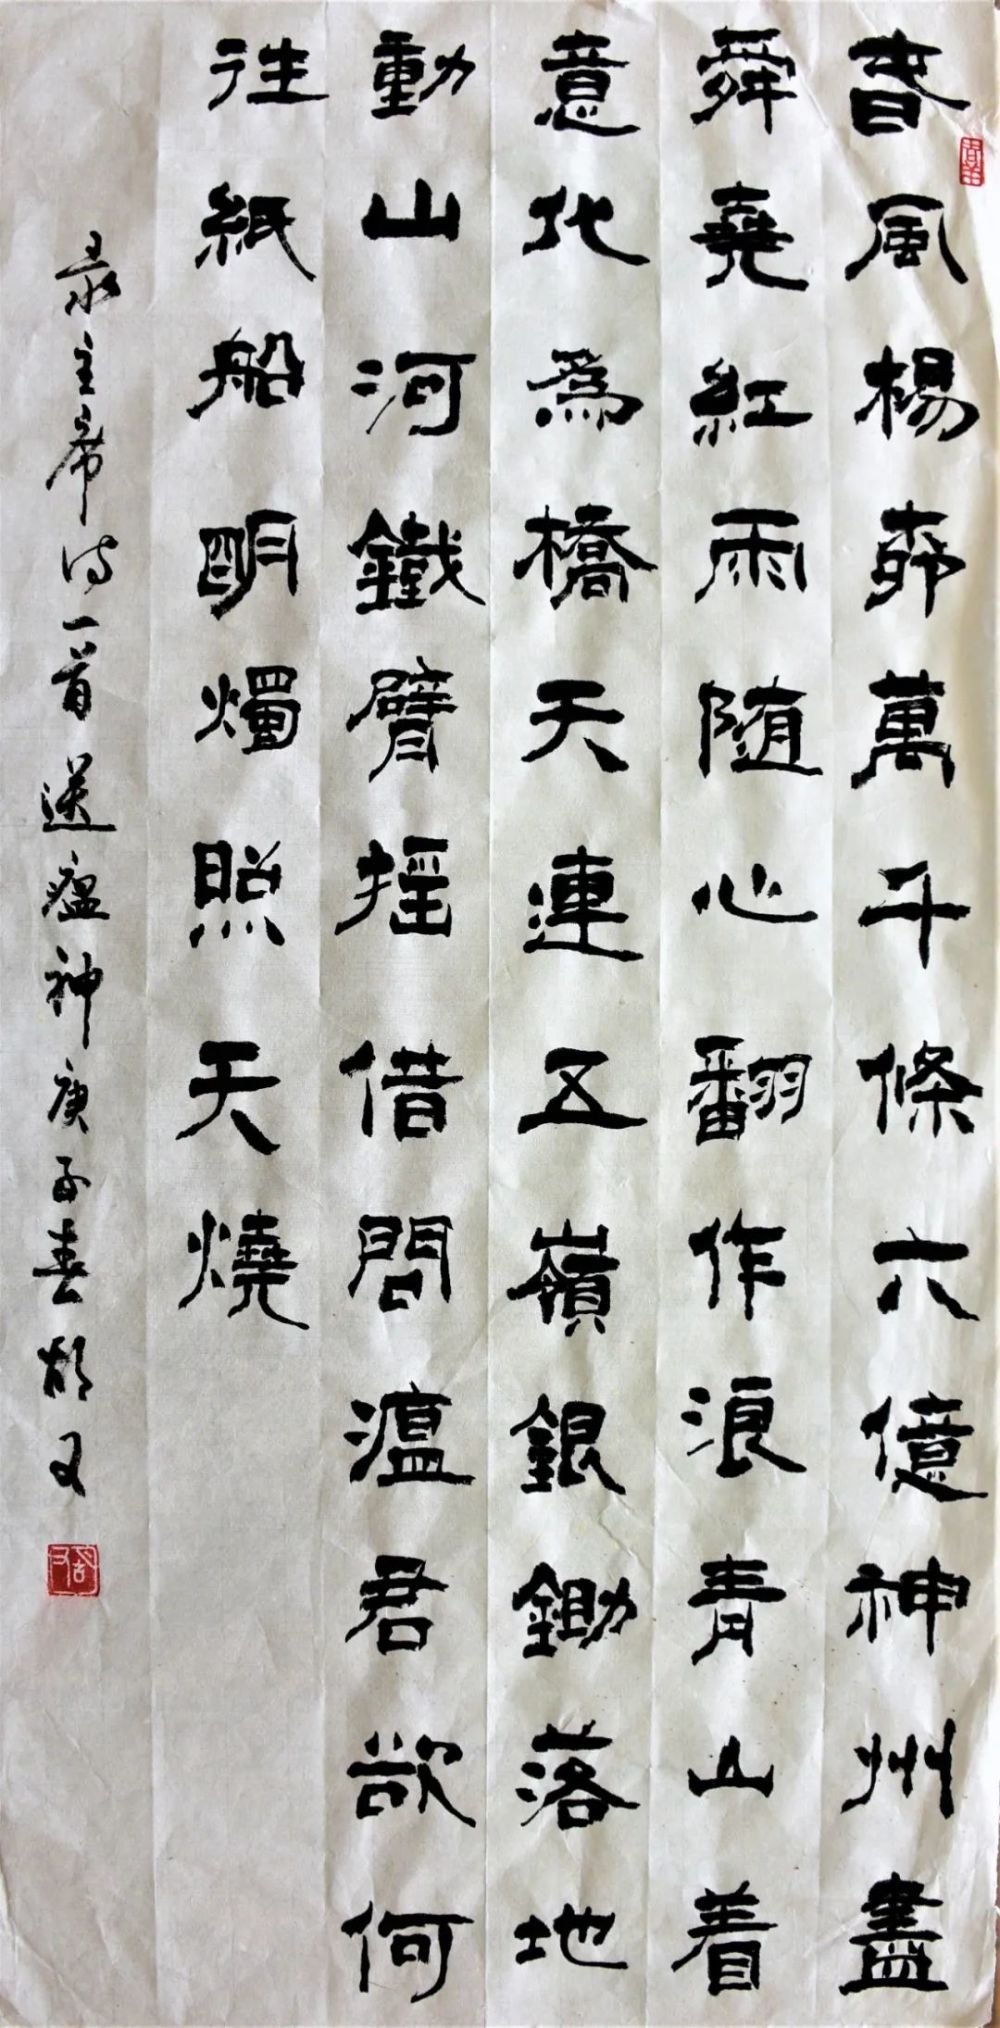 春風楊柳萬千條六億神州盡
舜堯紅雨随心翻作浪青山着
意化為橋天連五嶺銀鋤落地
動山河鐵臂摇借問瘟君欲何
往紙船明燭照天燒
录主席诗一首送瘟神庚子春胡又